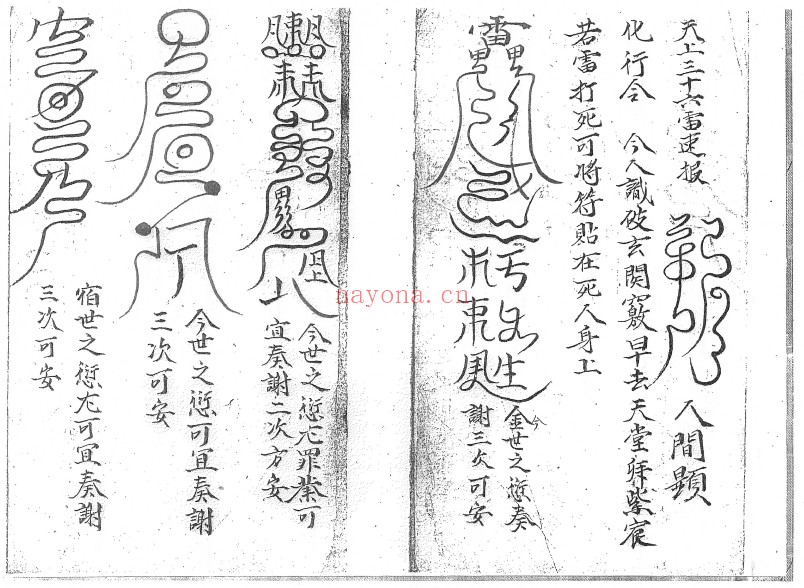 天上三十六雷速报
人間顯
化行令 今人識破玄関竅早去天堂拜紫宸
若雷打死可將符貼在死人身上
今
金世之愆奏
謝三次可安
今世之愆尤罪業可
宜奏謝二次方安
今世之愆可宜奏謝
三次可安
宿世之愆尤可宜奏謝
三次可安
nayona.cn